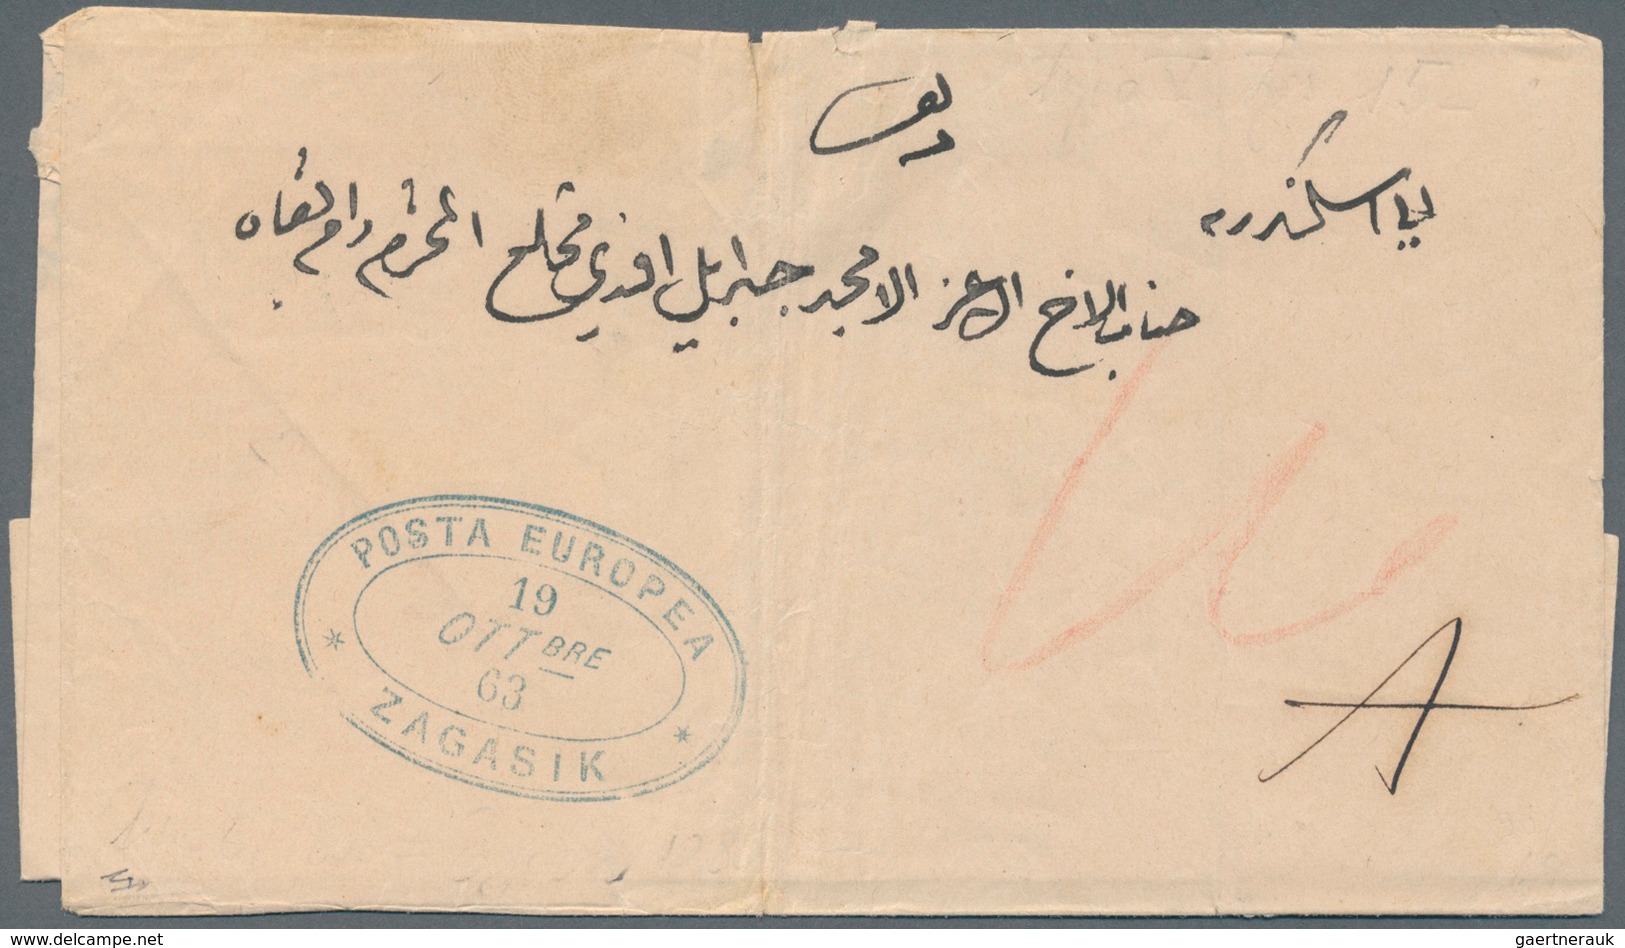 الى اسكندريه
جناب الاخ الاعز الامجد جبرايل افندي مخلع المحترم دام بقاه
POSTA EUROPEA
19
OTTBRE
63
ZAGASIK
A
delcampe.net
gaertnerauk